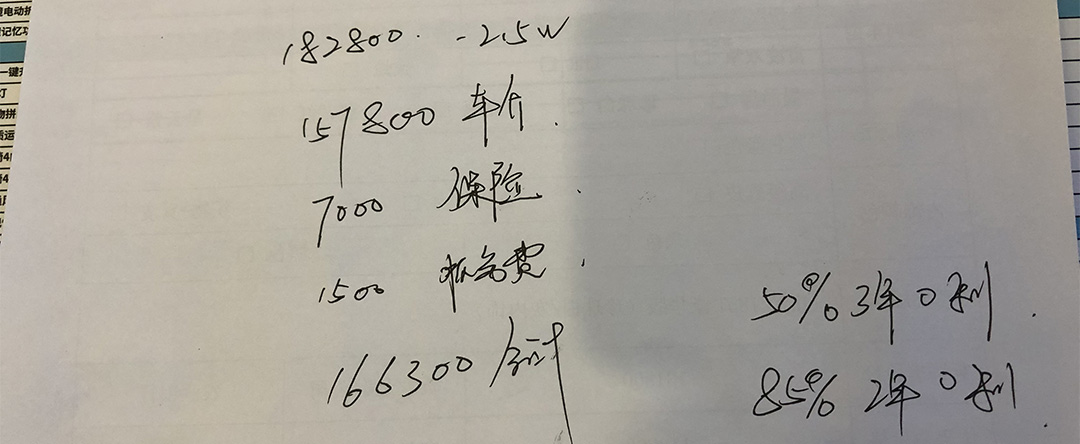 182800. -2.5W
157800 车价.
7000 保险.
1500 服务费.
166300 合计
50% 3年0利.
85% 2年0利.
电动折
记忆功
一键升
灯
物拼
质运